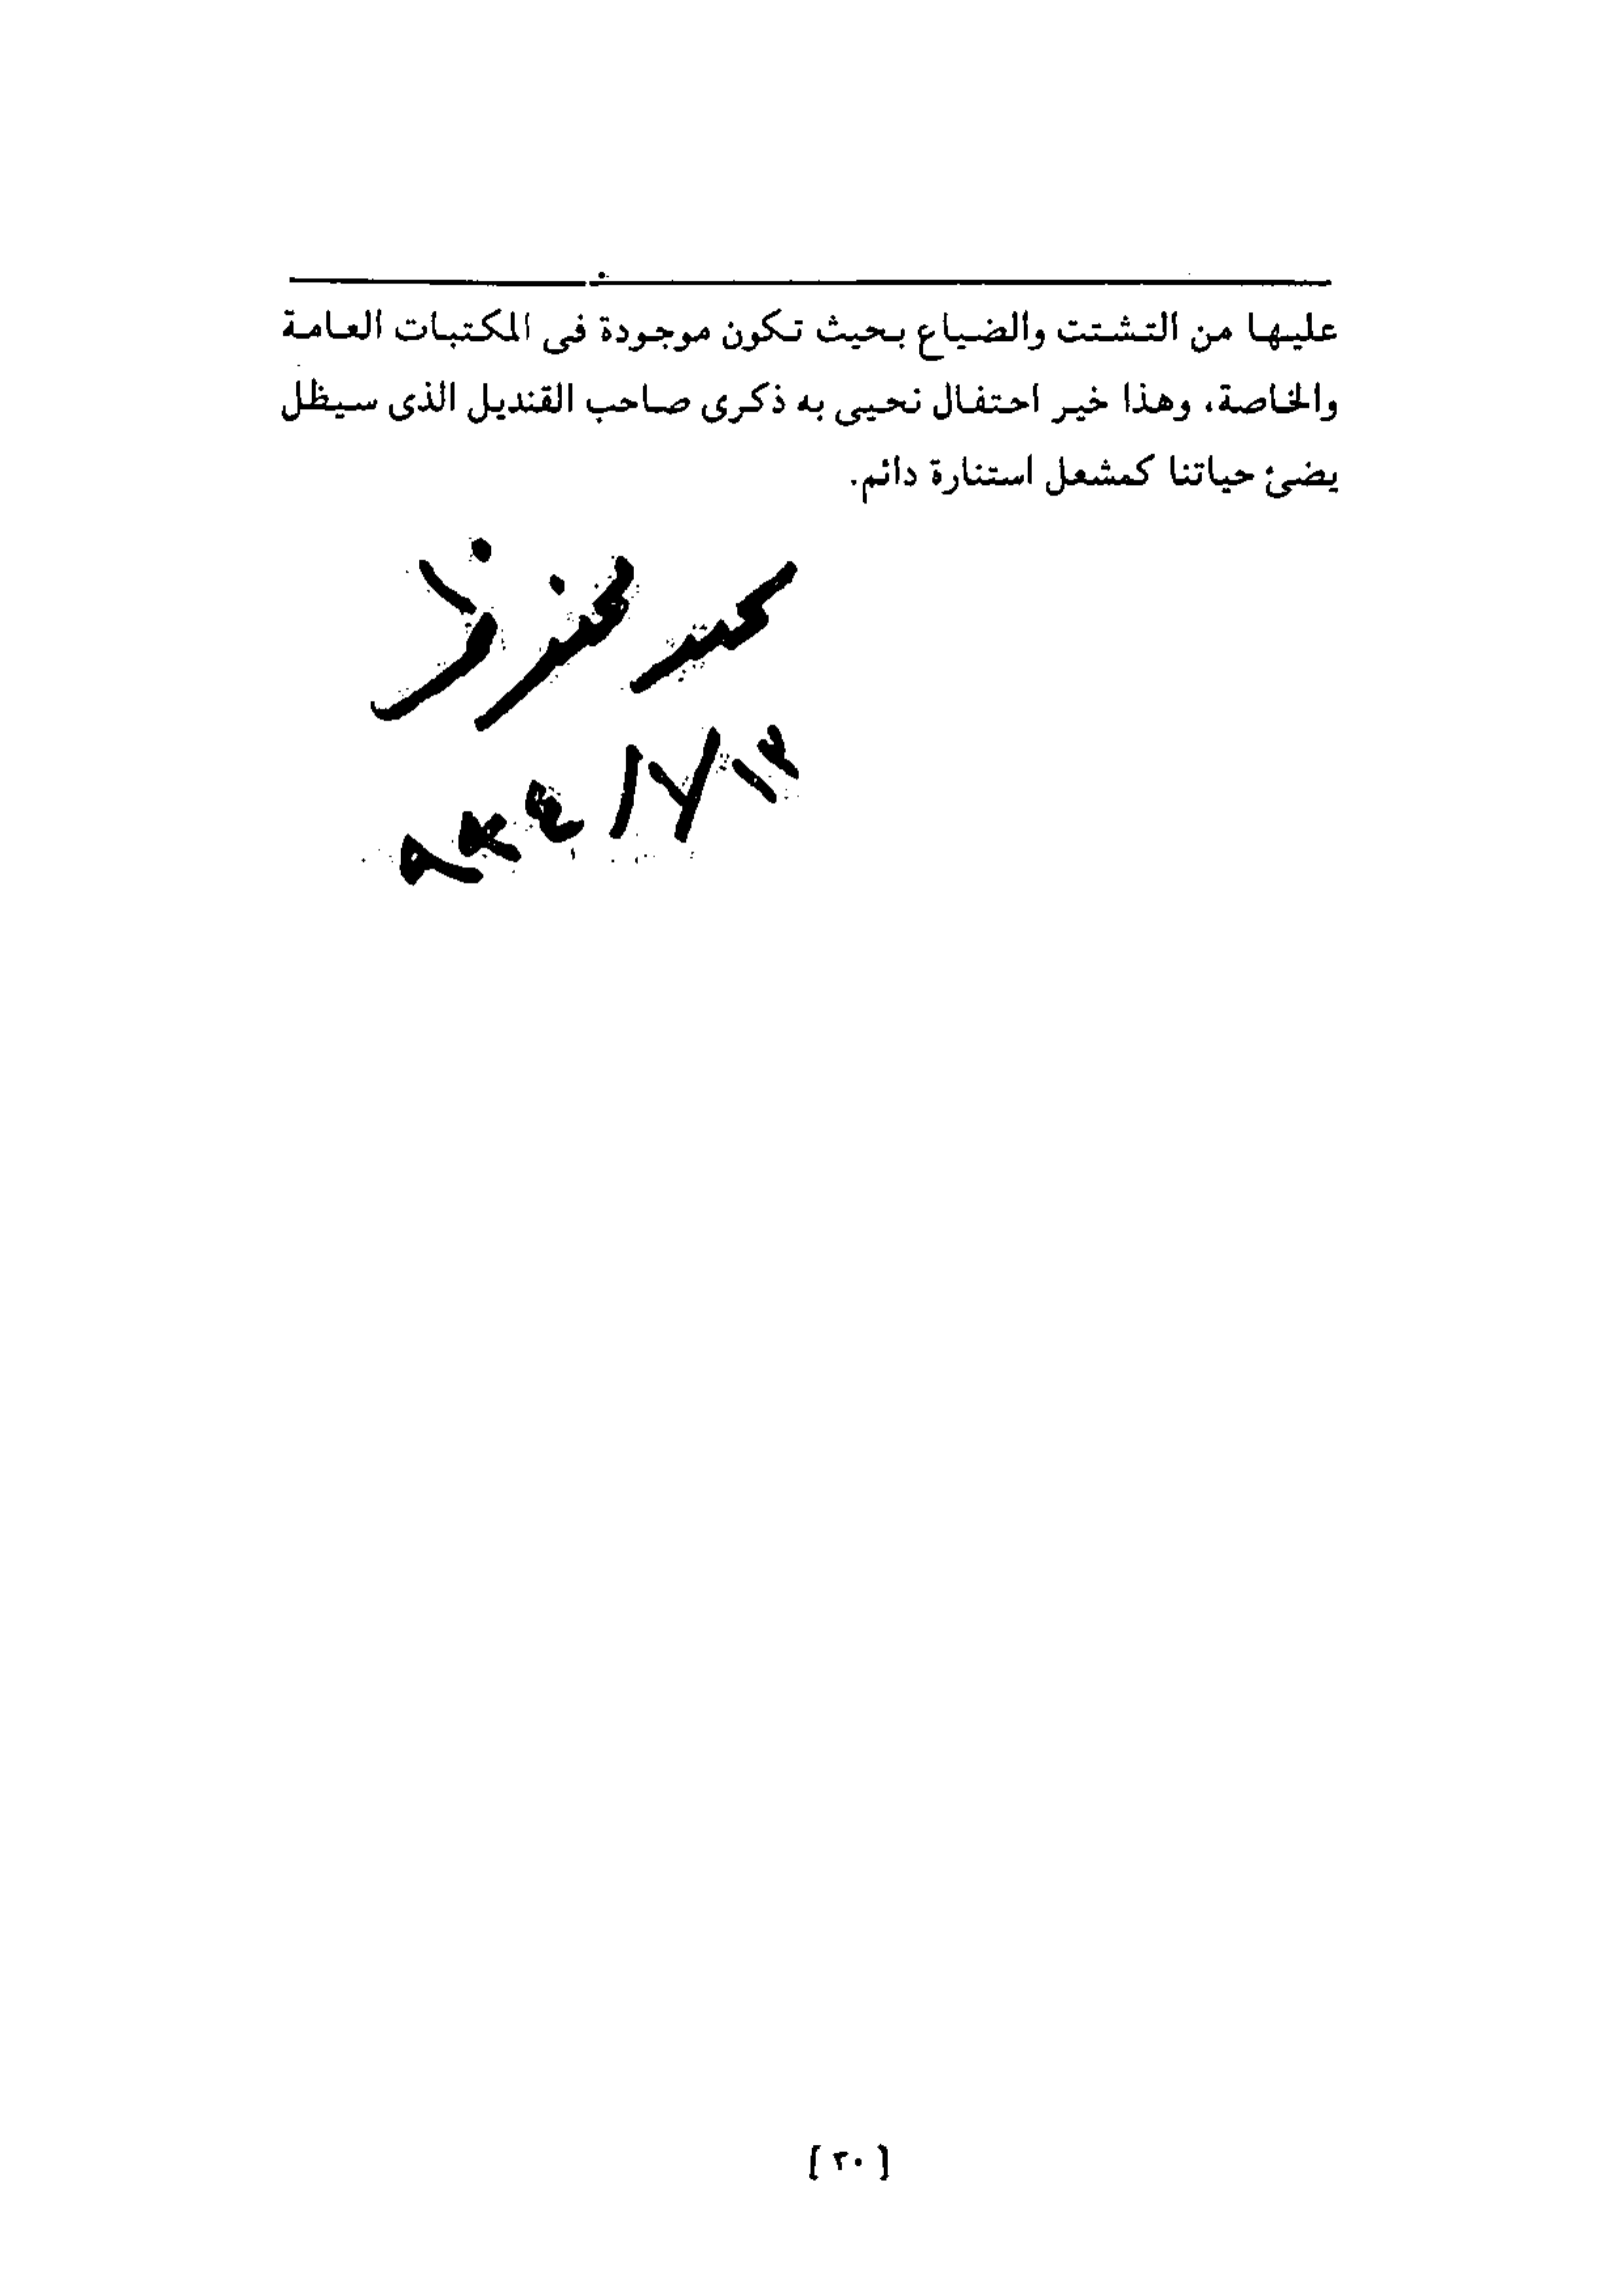 عليها من التشتت والضياع بحيث تكون موجودة فى المكتبات العامة
والخاصة، وهذا خير احتفال نحيى به ذكرى صاحب القنديل الذى سيظل
يضئ حياتنا كمشعل استنارة دائم.
[٢٠]